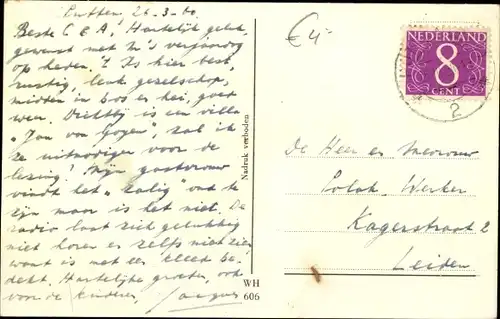 Putten, 26-3-60
Beste C & A! Hartelijk geluk
gewenst met M's verjaardag
op heden. 't Is hier best,
rustig, leuk gezelschap,
midden in bos en hei, goed
weer. Dichtbij is een villa
"Jan van Goyen", zal ik
ze uitnodigen voor de
lezing? Mijn gastvrouw
vindt het "zalig" oud te
zijn maar is het niet. De
radio laat zich gelukkig
niet horen en zelfs niet zien,
want is met een kleed be-
dekt. Hartelijke groeten, ook
voor de kinderen,
Nadruk verboden
WH
606
€4
NEDERLAND
8
CENT
2
De Heer en Mevrouw
Polak-Werker
Kagerstraat 2
Leiden